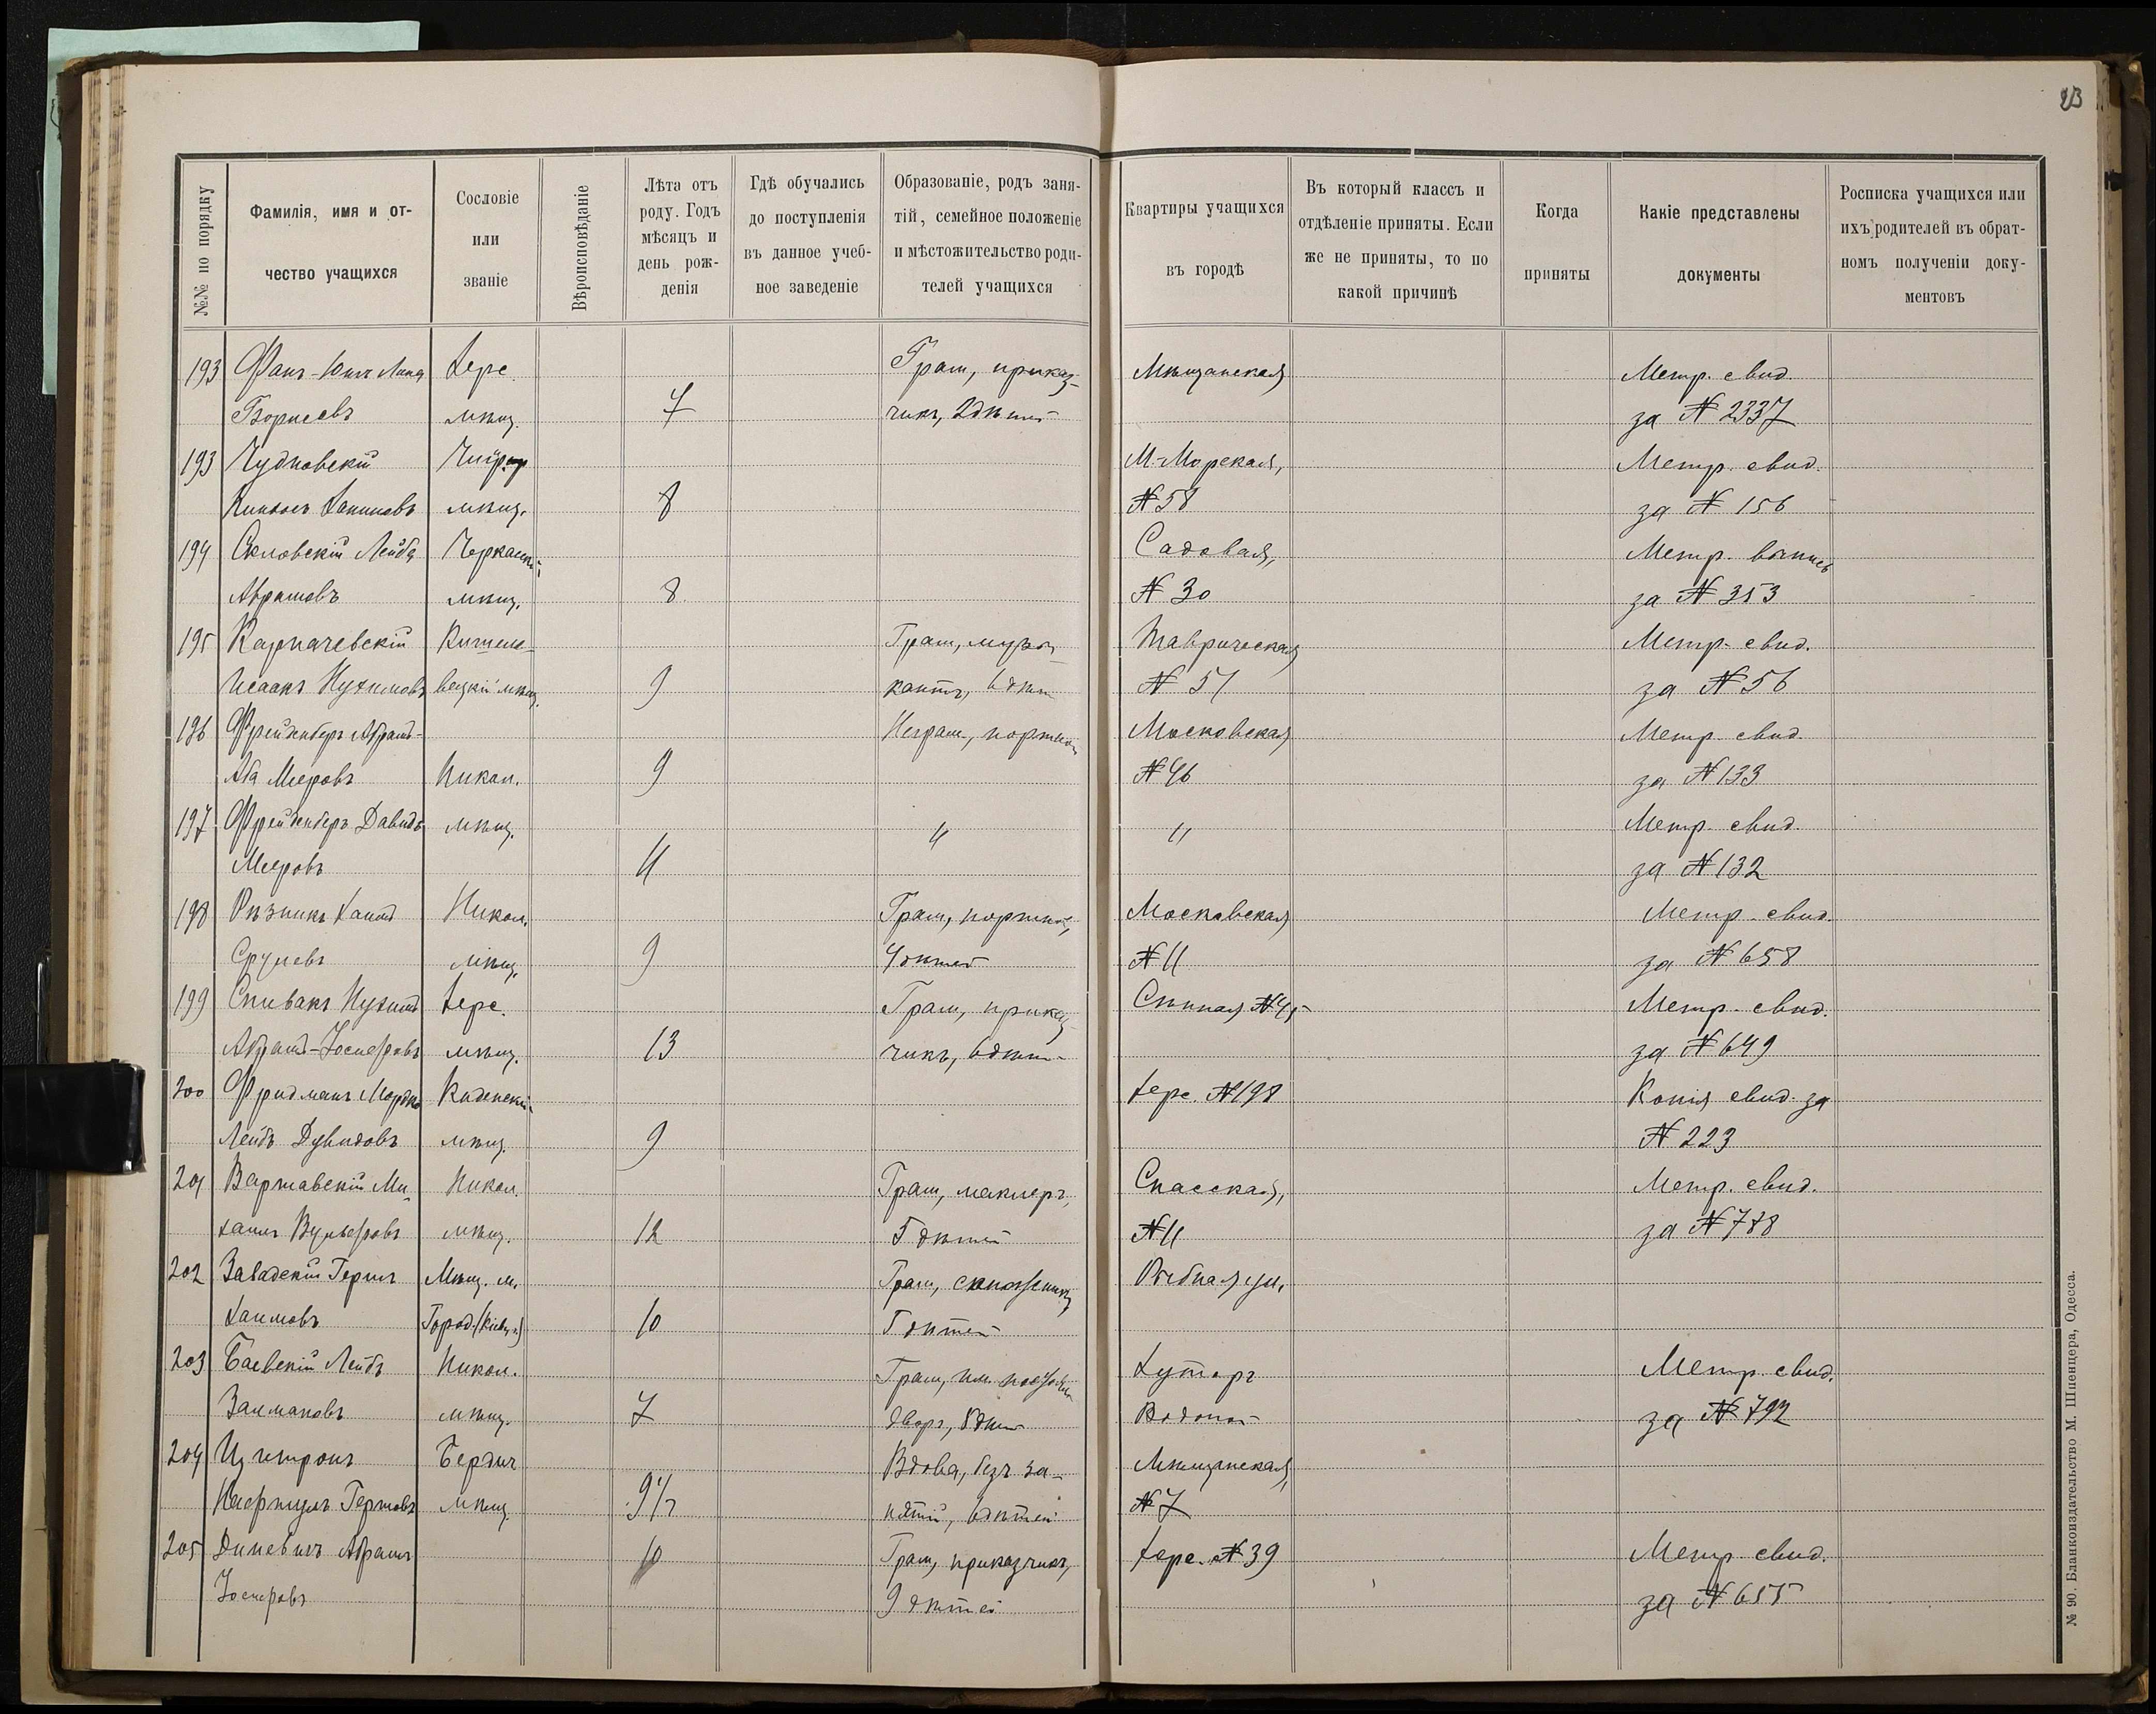 23
№№ по порядку
Фамилія, имя и от-
чество учащихся
Сословіе
или
званіе
Вѣроисповѣданіе
Лѣта отъ
роду. Годъ
мѣсяцъ и
день рож-
денія
Гдѣ обучались
до поступленія
въ данное учеб-
ное заведеніе
Образованіе, родъ заня-
тій, семейное положеніе
и мѣстожительство роди-
телей учащихся
Квартиры учащихся
въ городѣ
Въ который классъ и
отдѣленіе приняты. Если
же не приняты, то по
какой причинѣ
Когда
приняты
Какіе представлены
документы
Росписка учащихся или
ихъ родителей въ обрат-
номъ полученіи доку-
ментовъ
193 Херс. Грам, приказ- Мѣщанская Метр. свид.
Борисовъ мѣщ. 7 чикъ, 2 дѣтей за № 2337
193 Чудновскій М.-Морская, Метр. свид.
Хаимовъ мѣщ. 8 № 58 за № 156
194 Скловскій Лейба Черкасск. Садовая, Метр. выпись
Абрамовъ мѣщ. 8 № 30 за № 353
195 Карпачевскій Кишине- Грам, музы- Таврическая Метр. свид.
Исаакъ Нухимовъ вецкій мѣщ. 9 кантъ, 6 дѣт № 57 за № 56
196 Фрейденберъ Абрамъ- Неграм, портной Московская Метр. свид.
Аба Мееровъ Никол. 9 № 46 за № 133
197 Фрейденберъ Давидъ мѣщ. " " Метр. свид.
Мееровъ 11 за № 132
198 Рѣзникъ Хаимъ Никол. Грам, портной, Московская Метр. свид.
Срулевъ мѣщ. 9 4 дѣтей № 11 за № 658
199 Спивакъ Нухимъ Херс. Грам, приказ- Сѣнная № 45 Метр. свид.
Абрамъ-Іосифовъ мѣщ. 13 чикъ, 6 дѣт- за № 649
200 Фридманъ Мордко Херс. № 198 Копія свид. за
Лейбъ Дувидовъ мѣщ. 9 № 223
201 Варшавскій Ми- Никол. Грам, маклеръ, Спасская, Метр. свид.
хаилъ Вульфовъ мѣщ. 12 5 дѣтей № 11 за № 788
202 Завадскій Гершъ Мѣщ. м. Грам, сапожникъ Рыбная ул.
Хаимовъ Город. (Кіев. г.) 10 5 дѣтей
203 Баевскій Лейбъ Никол. Грам, Хуторъ Метр. свид.
Залмановъ мѣщ. 7 дворъ, 8 дѣт Водопой за № 792
204 Цитронъ Бердич Вдова, безъ за- Мѣщанская,
Гершовъ мѣщ. 9½ нятій, 6 дѣтей № 7
205 Диневичъ Абрамъ 10 Грам, приказчикъ, Херс. № 39 Метр. свид.
Іосифовъ 9 дѣтей за № 655
№ 90. Бланкоиздательство М. Шпенцера, Одесса.